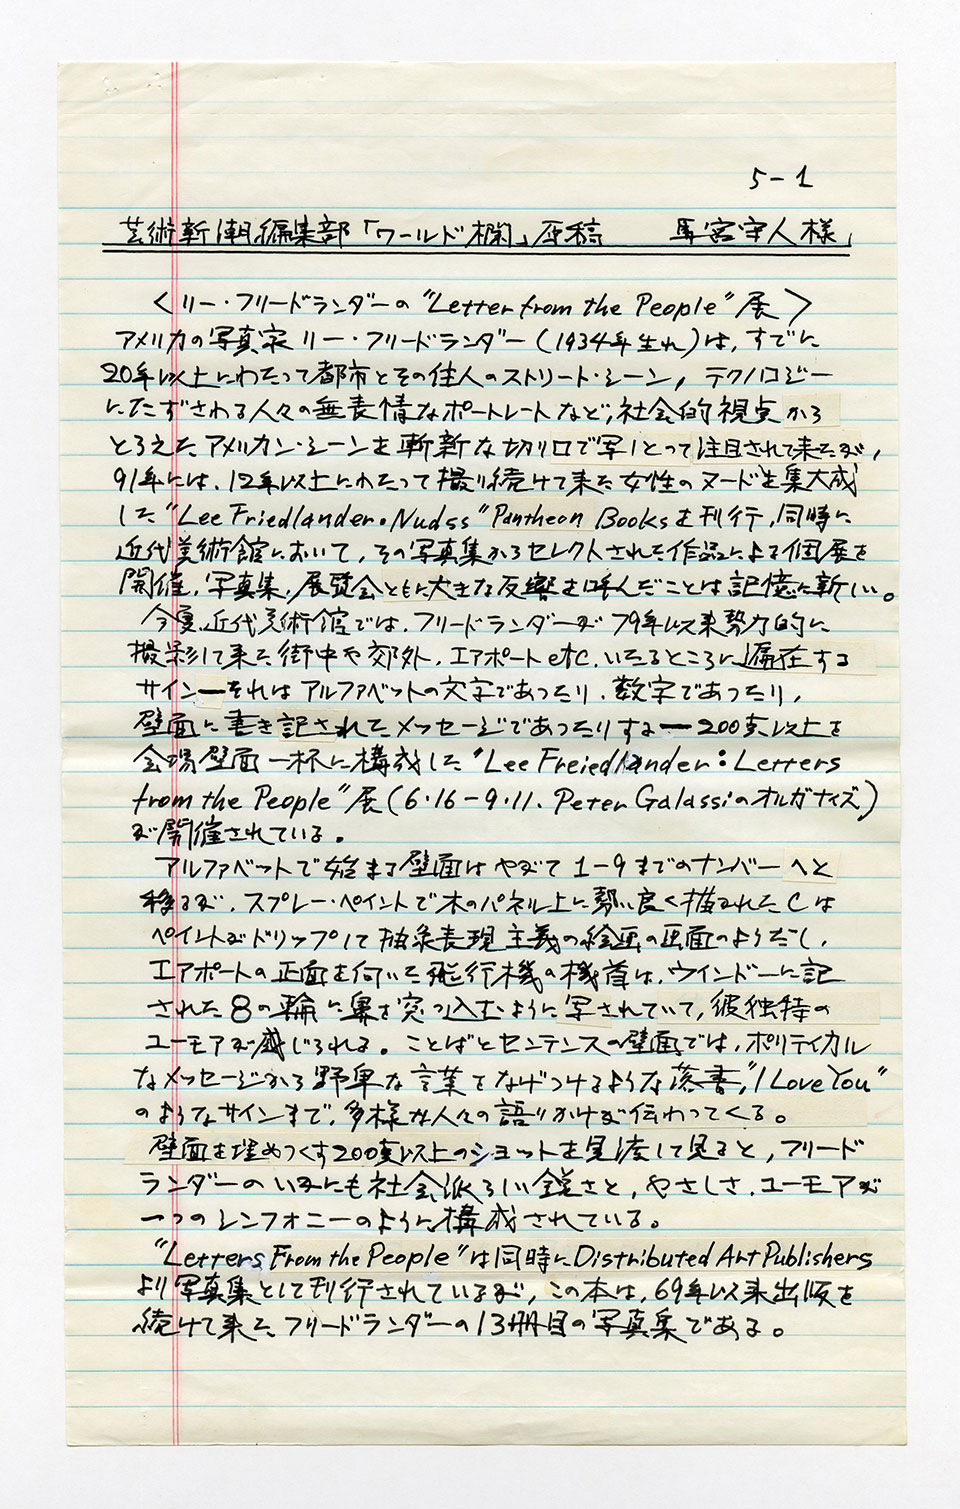 5-1
芸術新潮編集部「ワールド欄」原稿 馬宮守人様
〈リー・フリードランダーの"Letter from the People"展〉
アメリカの写真家リー・フリードランダー(1934年生れ)は、すでに
20年以上にわたって都市とその住人のストリート・シーン、テクノロジー
にたずさわる人々の無表情なポートレートなど、社会的視点から
とらえたアメリカン・シーンを斬新な切り口で写しとって注目されて来たが、
91年には、12年以上にわたって撮り続けて来た女性のヌードを集大成
した"Lee Friedlander・Nudss"Pantheon Booksを刊行、同時に
近代美術館において、その写真集からセレクトされた作品による個展を
開催、写真集、展覧会ともに大きな反響を呼んだことは記憶に新しい。
今夏、近代美術館では、フリードランダーが79年以来勢力的に
撮影して来た街中や郊外、エアポートetc.いたるところに遍在する
サイン—それはアルファベットの文字であったり、数字であったり、
壁面に書き記されたメッセージであったりする—200点以上を
会場壁面一杯に構成した"Lee Freiedlander:Letters
from the People"展(6・16-9・11. Peter Galassiのオルガナイズ)
が開催されている。
アルファベットで始まる壁面はやがて1-9までのナンバーへと
移るが、スプレー・ペイントで木のパネル上に勢い良く描かれたCは
ペイントがドリップして抽象表現主義の絵画の画面のようだし、
エアポートの正面を向いた飛行機の機首は、ウインドーに記
された8の輪に鼻を突っ込むように写されていて、彼独特の
ユーモアが感じられる。ことばとセンテンスの壁面では、ポリティカル
なメッセージから野卑な言葉をなげつけるような落書、"I Love You"
のようなサインまで、多様な人々の語りかけが伝わってくる。
壁面を埋めつくす200点以上のショットを見渡して見ると、フリード
ランダーのいかにも社会派らしい鋭さと、やさしさ、ユーモアが
一つのシンフォニーのように構成されている。
"Letters From the People"は同時にDistributed Art Publishers
より写真集として刊行されているが、この本は、69年以来出版を
続けて来たフリードランダーの13冊目の写真集である。